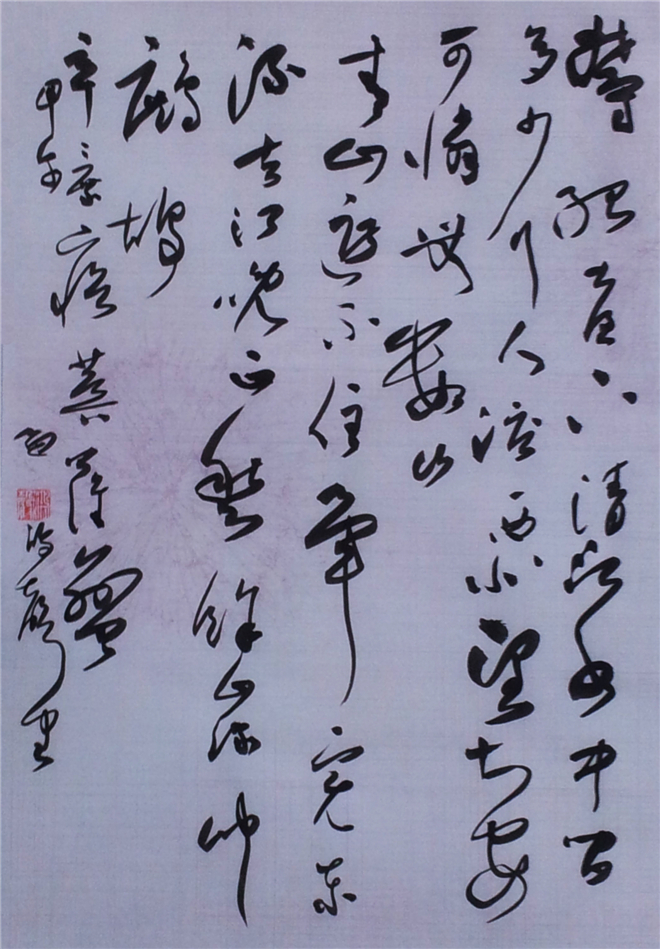 鬱孤臺下清江水中間
多少行人淚西北望長安
可憐無數山
青山遮不住畢竟東
流去江晚正愁餘山深聞
鷓鴣
辛棄疾菩薩蠻
甲午
書